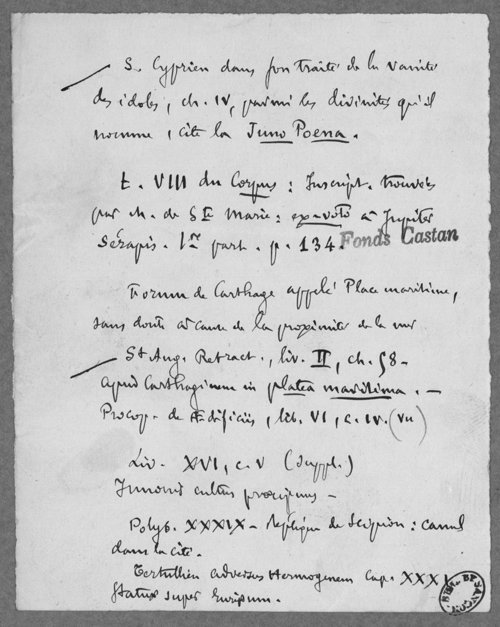 S. Cyprien dans son traité de la vanité
des idoles, ch. IV, parmi les divinités qu'il
nomme, cite la Juno Poena.
t. VIII du Corpus: Inscript. trouvées
par M. de Ste Marie: ex-voto à Jupiter
Sérapis. 1re part. p. 134.
Fonds Castan
Forum de Carthage appelé Place maritime,
sans doute à cause de la proximité de la mer
St Aug. Retract., liv. II, ch. 58 –
apud Carthaginem in platea maritima. –
Procop. de Ædificiis, lib. VI, c. IV. (Vu)
Liv. XVI, c. V (suppl.)
Junonis cultus præcipuus –
Polyb. XXXIX – Réplique de Scipion: canal
dans la cité.
Tertullien adversus Hermogenem Cap. XXXI
status super Euripum.
BIBL. BESANÇON